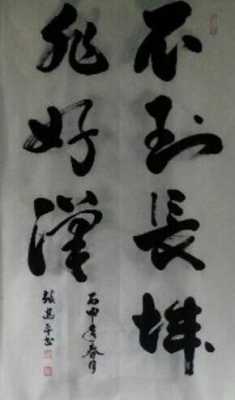 不到長城
非好漢
丙申年春月